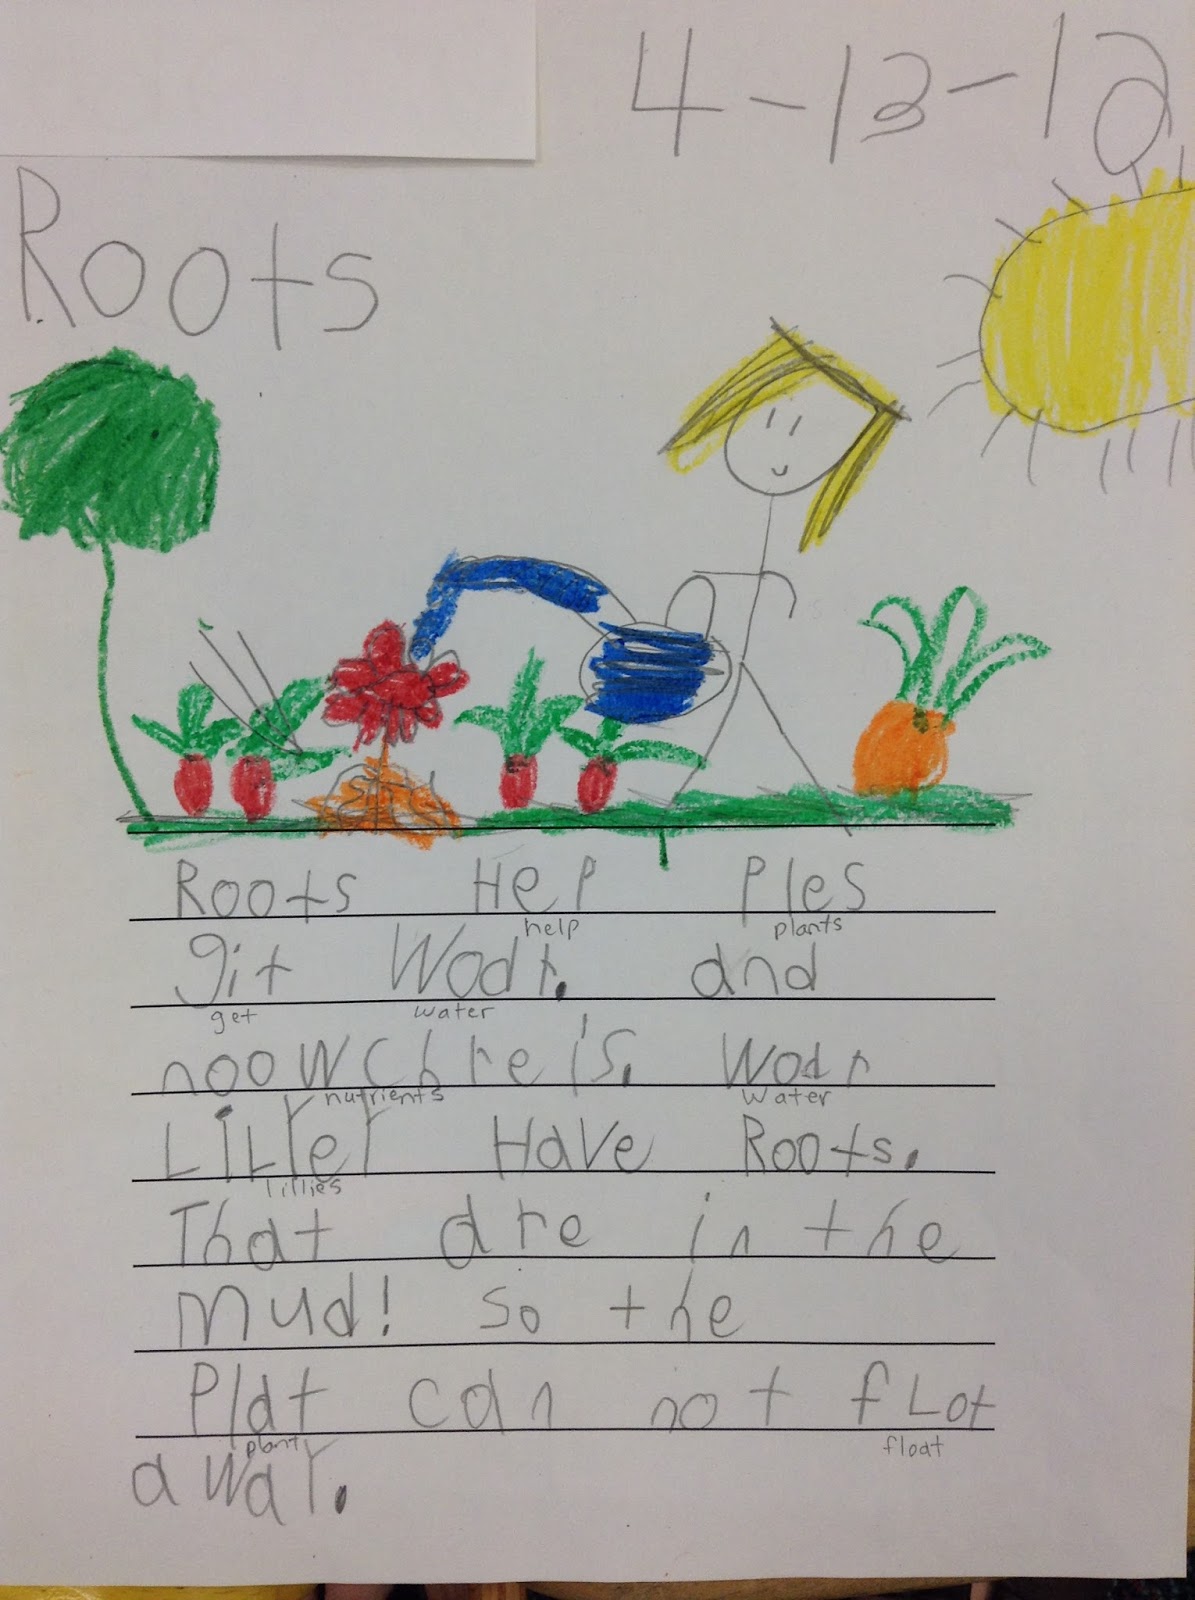 4-13-12
Roots
Roots Help Ples
help plants
git Wodr. and
get water
noowchreis. Wodr
nutrients water
LiLYeY Have Roots.
lillies
That are in the
mud! so the
Plat can not fLot
plant float
away.